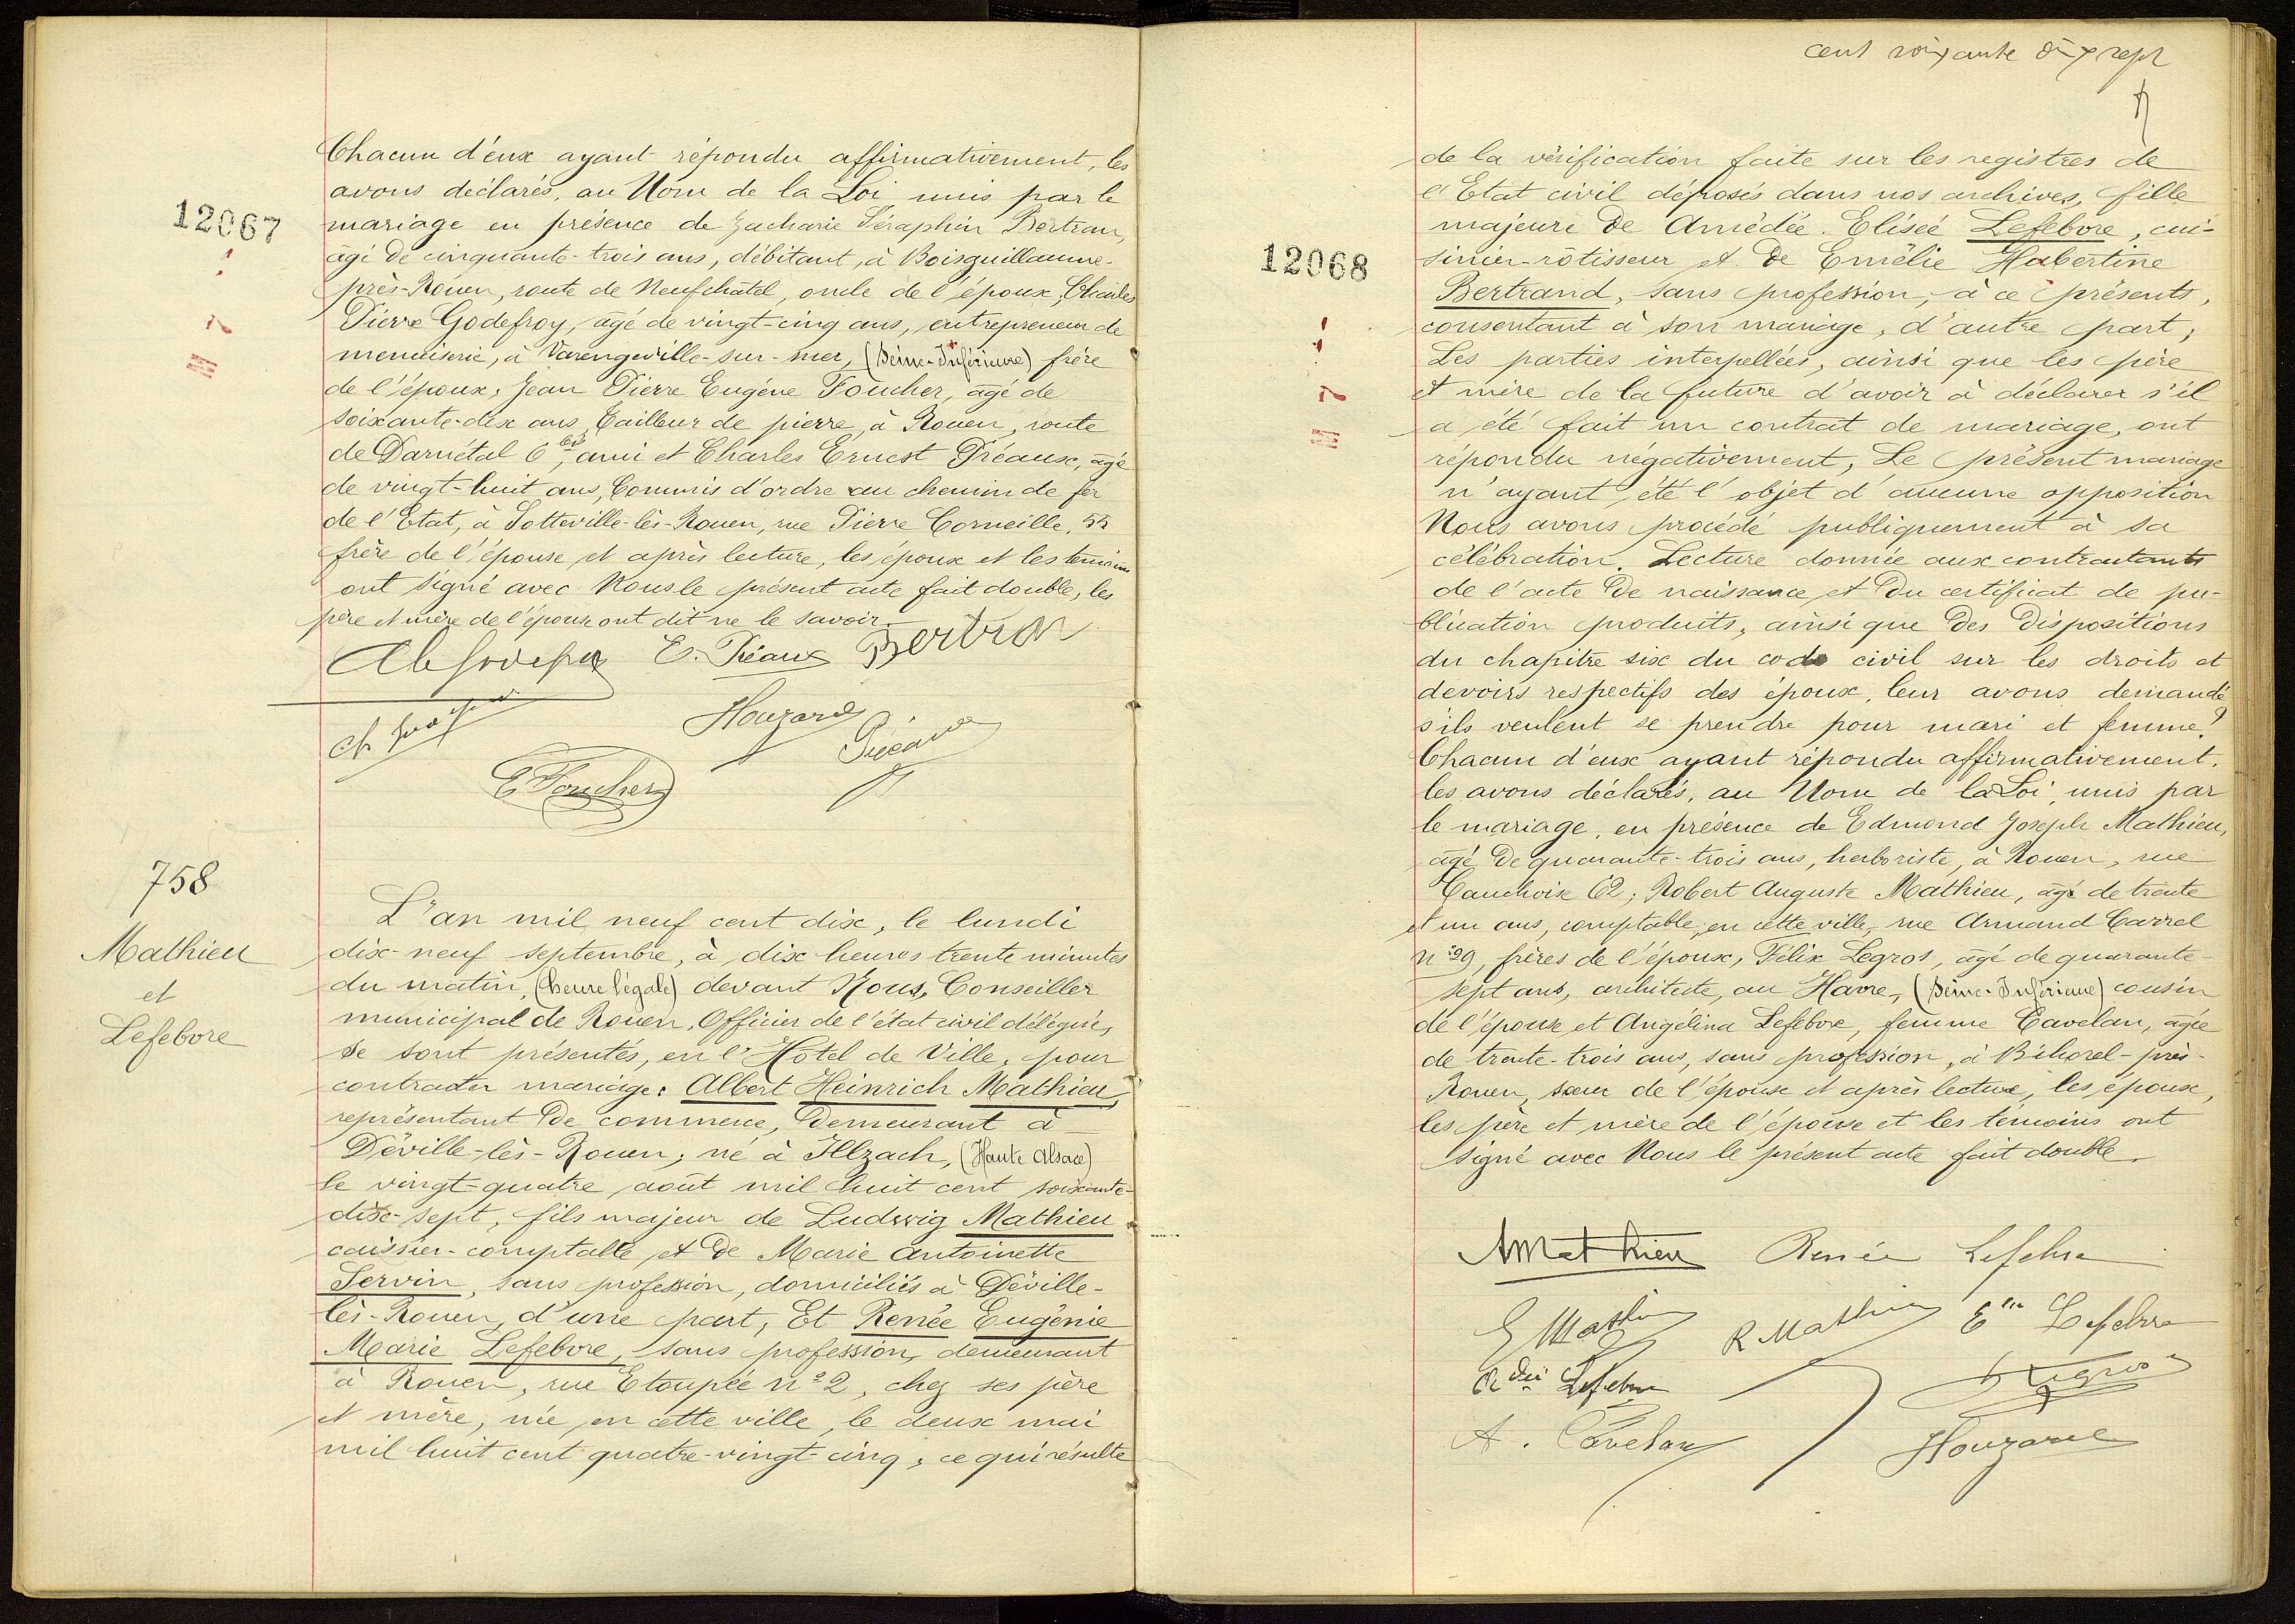 12067
Chacun d'eux ayant répondu affirmativement, les
avons déclarés, au Nom de la Loi unis par le
mariage en présence de Zacharie Séraphin Bertran,
âgé de cinquante-trois ans, débitant, à Boisguillaume-
près-Rouen, route de Neufchâtel, oncle de l'époux; Charles
Pierre Godefroy, âgé de vingt-cinq ans, entrepreneur de
menuiserie, à Varengeville-sur-mer, (Seine-Inférieure) frère
de l'époux; Jean Pierre Eugène Foucher, âgé de
soixante-dix ans, tailleur de pierre, à Rouen, route
de Darnétal 6 bis, ami et Charles Ernest Préaux, âgé
de vingt-huit ans, Commis d'ordre au chemin de fer
de l'Etat, à Sotteville-lès-Rouen, rue Pierre Corneille, 55
frère de l'épouse et après lecture, les époux et les témoins
ont signé avec Nous le présent acte fait double, les
père et mère de l'épouse ont dit ne le savoir.
E. Préaux Bertran
Houzard
Préaux
E Foucher
758
Mathieu
et
Lefebvre
L'an mil neuf cent dix, le lundi
dix-neuf septembre, à dix heures trente minutes
du matin, (heure légale) devant Nous, Conseiller
municipal de Rouen, Officier de l'état civil délégué,
se sont présentés, en l'Hôtel de Ville, pour
contracter mariage: Albert Heinrich Mathieu,
représentant de commerce, demeurant à
Déville-lès-Rouen, né à Illzach, (Haute Alsace)
le vingt-quatre août mil huit cent soixante-
dix-sept, fils majeur de Ludwig Mathieu
caissier-comptable et de Marie Antoinette
Servin, sans profession, domiciliés à Déville-
lès-Rouen, d'une part, Et Renée Eugénie
Marie Lefebvre, sans profession, demeurant
à Rouen, rue Etoupée n° 2, chez ses père
et mère, née en cette ville, le deux mai
mil huit cent quatre-vingt-cinq, ce qui résulte
cent soixante dix sept
12068
de la vérification faite sur les registres de
l'Etat civil déposés dans nos archives, fille
majeure de Amédée Elisée Lefebvre, cui-
sinier-rôtisseur et de Emélie Hubertine
Bertrand, sans profession, à ce présents,
consentant à son mariage, d'autre part;
Les parties interpellées, ainsi que les père
et mère de la future d'avoir à déclarer s'il
a été fait un contrat de mariage, ont
répondu négativement, Le présent mariage
n'ayant été l'objet d'aucune opposition
Nous avons procédé publiquement à sa
célébration. Lecture donnée aux contractants
de l'acte de naissance et du certificat de pu-
blication produits, ainsi que des dispositions
du chapitre six du code civil sur les droits et
devoirs respectifs des époux, leur avons demandé
s'ils veulent se prendre pour mari et femme?
Chacun d'eux ayant répondu affirmativement,
les avons déclarés, au Nom de la Loi, unis par
le mariage, en présence de Edmond Joseph Mathieu,
âgé de quarante-trois ans, herboriste, à Rouen, rue
Cauchoise 62; Robert Auguste Mathieu, âgé de trente
et un ans, comptable, en cette ville, rue Armand Carrel
n° 29, frères de l'époux, Félix Legros, âgé de quarante-
sept ans, architecte, au Havre, (Seine-Inférieure) cousin
de l'épouse et Angélina Lefebvre, femme Cavelan, âgée
de trente-trois ans, sans profession, à Bihorel-près-
Rouen, sœur de l'épouse et après lecture, les époux,
les père et mère de l'épouse et les témoins ont
signé avec Nous le présent acte fait double.
AMathieu Renée Lefebvre
E Mathieu R Mathieu Elie Lefebvre
Lefebvre Legros
A. Cavelan Houzard